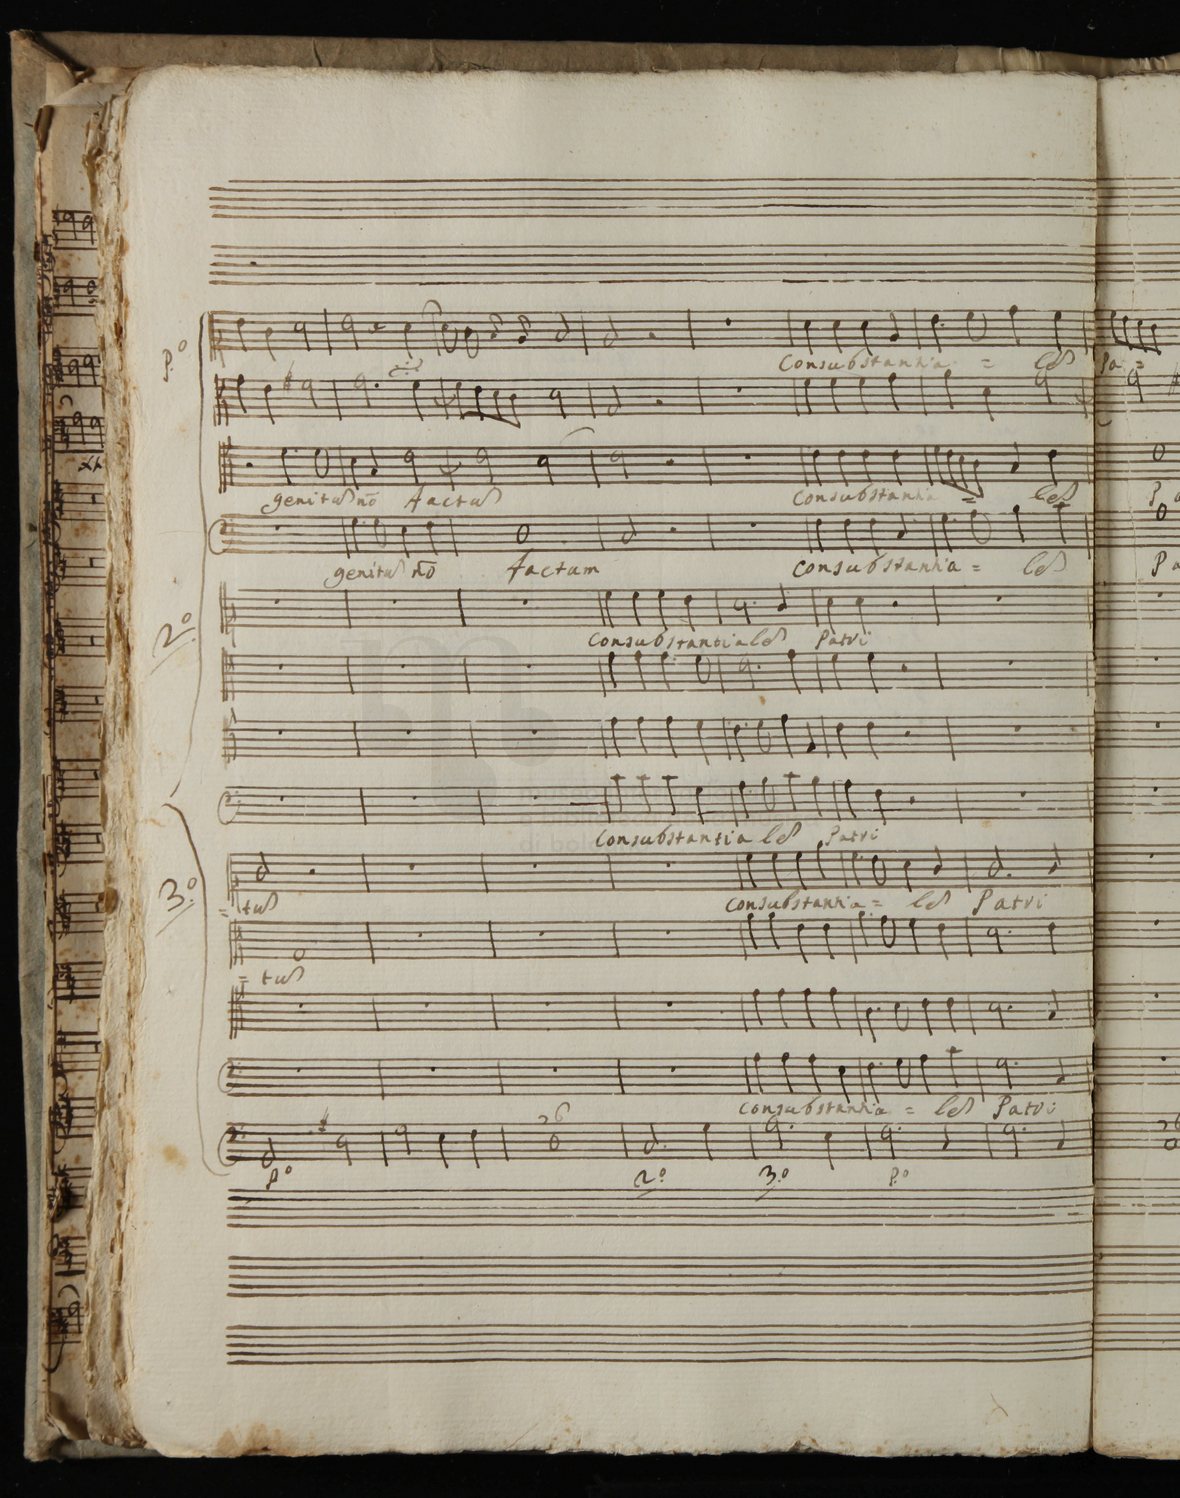 P.º
Consubstantia = leƧ Pa =
genituƧ nō factuƧ Consubstantia = leƧ
genituƧ nō factum Consubstantia = leƧ Pa
2.º
ConsubstantialeƧ Patri
Consubstantia leƧ Patri
3.º
= tuƧ consubstantia = leƧ Patri
= tuƧ
consubstantia = leƧ Patri
6
P.º 2.º 3.º P.º